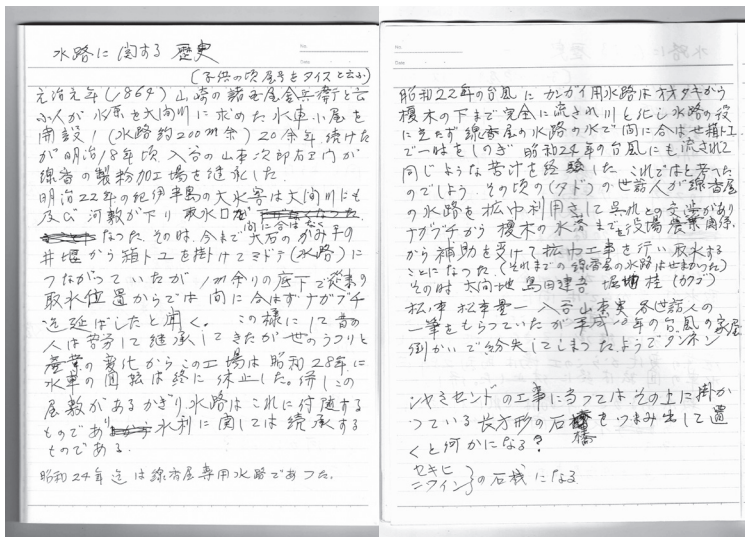 水路に関する歴史
(子供の頃屋号をダイスと云ふ)
元治元年(1864)山崎の諸毛屋金兵衛と云
ふ人が水原を大向川に求めた水車小屋を
開設し(水路約200m余)20余年続けた
が明治18年頃入谷の山東次郎右エ門が
線香の製粉加工場を継承した。
明治22年の紀伊半島の大水害は大向川にも
及び河敷が下り取水口が
間に合はなく
なった。その時、今まで大石のかみ手の
井堰から箱トユを掛けてミゾテ(水路)に
つながっていたが1m余りの底下で従来の
取水位置からでは間に合はずナガブチ
迄延ばしたと聞く。この様にして昔の
人は苦労して継承してきたが世のうつりと
産業の変化からこの工場は昭和28年に
水車の回転は終に休止した。併しこの
屋敷があるかぎり水路はこれに付随する
ものであり水利に関しては続承する
ものである。
昭和24年迄は線香屋専用水路であった。
昭和22年の台風にカンガイ用水路はオオタキから
榎木の下まで完全に流され川と化し水路の役
に立たず線香屋の水路の水で間に合はせ箱トユ
で一時をしのぎ昭和24年の台風にも流されて
同じような苦汁を経験した。これではと考へた
のでしよう。その頃の(タド)の世話人が線香屋
の水路を拡巾利用さして呉れとの交渉があり
ナガブチから榎木の水落までを役場農業関係
から補助を受けて拡巾工事を行い取水する
ことになった。(それまでの線香屋の水路は世まかった)
その時 大向地 島田建吾 堀地 桂(カゴ)
松ノ本 松本愛一 入谷山東実 各世話人の
一筆をもらっていたが平成 年の台風の家屋
倒かいで紛失してしまったようでザンネン
シヤミセンドの工事に当っては、その上に掛か
っている長方形の石橋をつまみ出して置
橋
くと何かになる?
セキヒ
ニワイシ}の石材になる